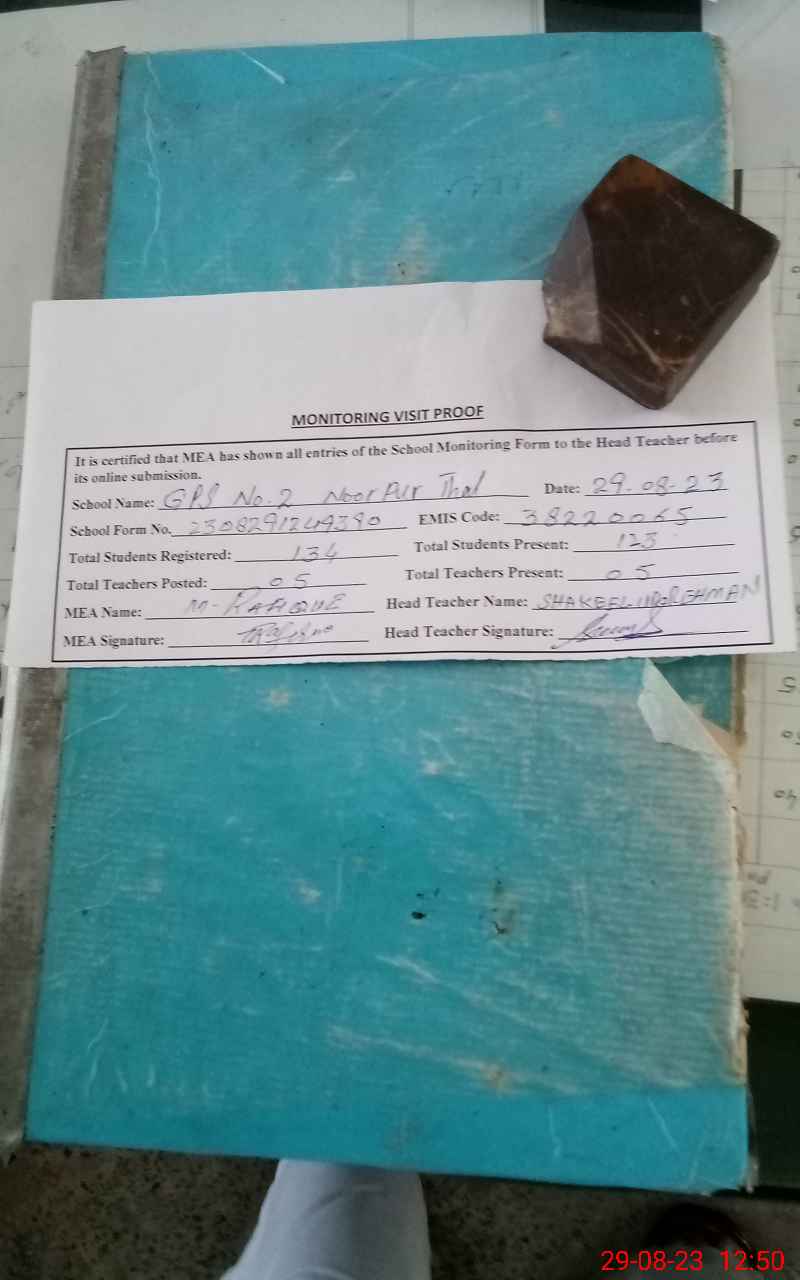 MONITORING VISIT PROOF
It is certified that MEA has shown all entries of the School Monitoring Form to the Head Teacher before
its online submission.
School Name: GPS No. 2 Noor Pur Thal Date: 29-08-23
School Form No. 2308291249390 EMIS Code: 38220065
Total Students Registered: 134 Total Students Present: 123
Total Teachers Posted: 05 Total Teachers Present: 05
MEA Name: M-RAFIQUE Head Teacher Name: SHAKEEL UR REHMAN
MEA Signature: Head Teacher Signature:
29-08-23 12:50